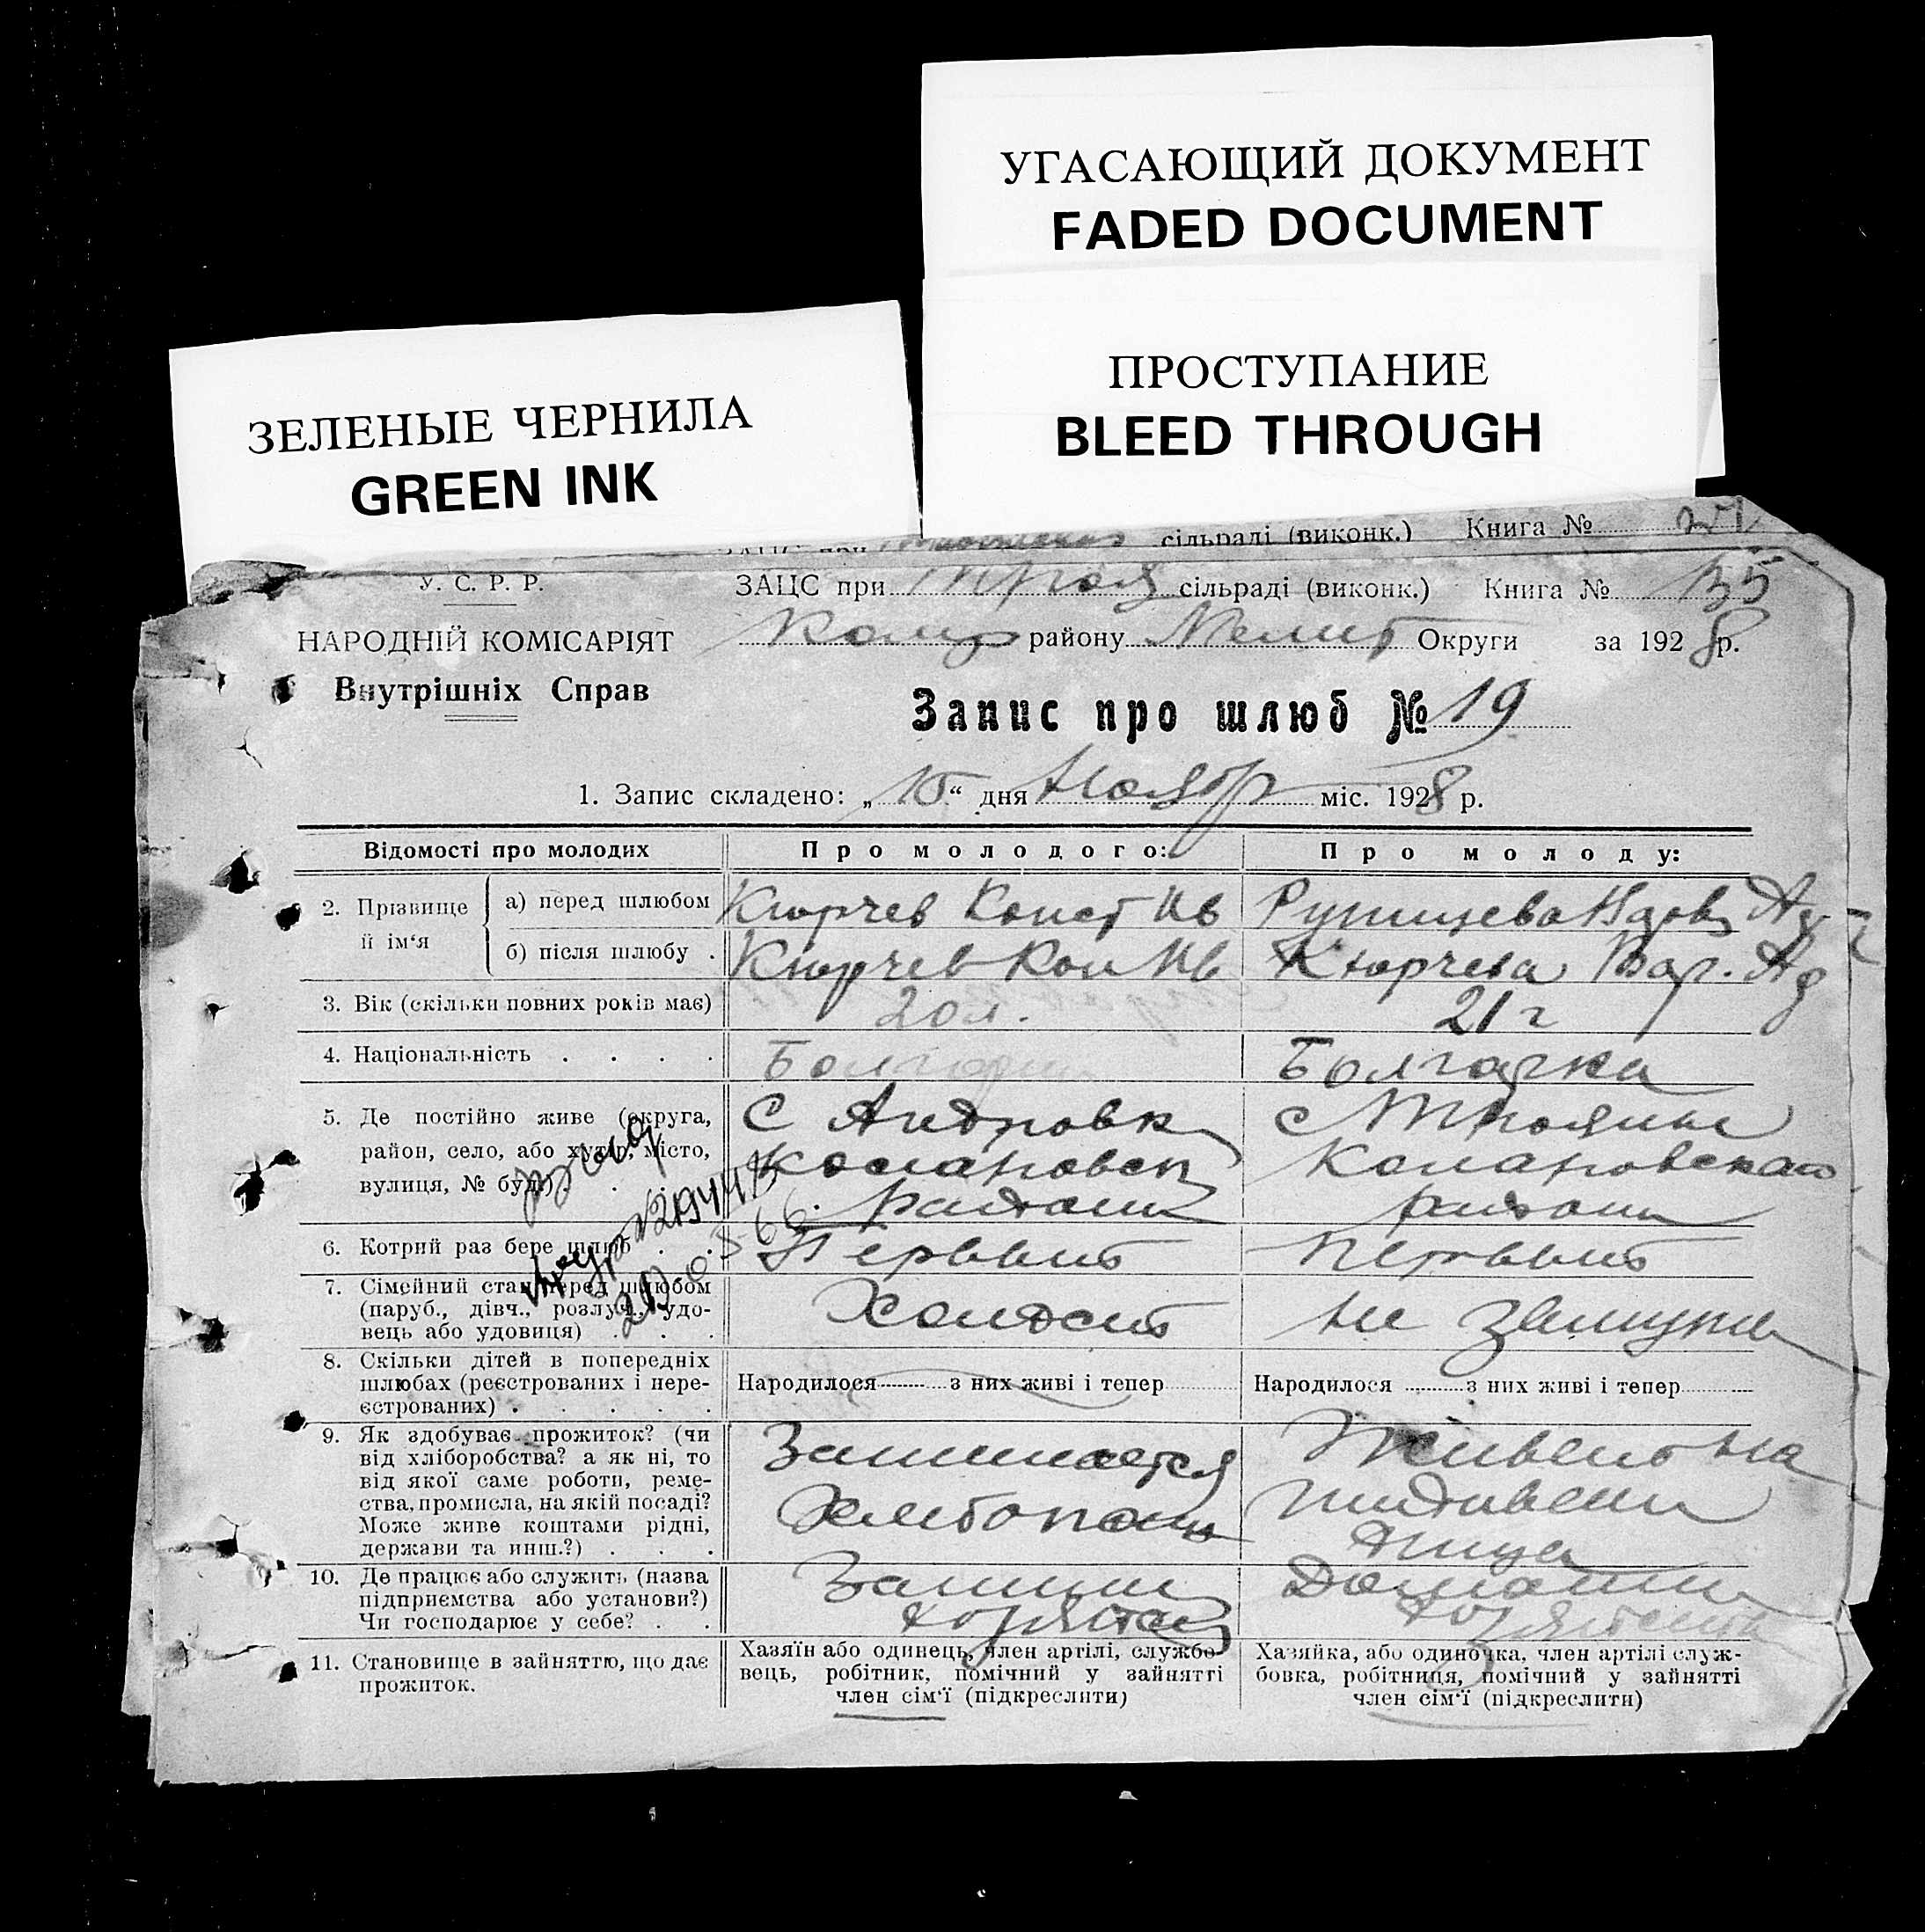 УГАСАЮЩИЙ ДОКУМЕНТ
FADED DOCUMENT
ПРОСТУПАНИЕ
BLEED THROUGH
ЗЕЛЕНЫЕ ЧЕРНИЛА
GREEN INK
сільраді (виконк.) Книга №
У. С. Р. Р.
ЗАЦС при Трояз сільраді (виконк.) Книга № 135
НАРОДНІЙ КОМІСАРІЯТ
району Мелит Округи за 1928 р.
Внутрішніх Справ
Запис про шлюб № 19
1. Запис складено: „15“ дня Ноябр міс. 1928 р.
Відомості про молодих
Про молодого:
Про молоду:
2. Прізвище й ім‘я
а) перед шлюбом
Кюрчев Конст Ив
б) після шлюбу .
Кюрчев Кон Ив
Кюрчева Вар. Ад
3. Вік (скільки повних років має)
20 л.
21 г
4. Національність . . . .
Болгарин
Болгарка
5. Де постійно живе (округа,
район, село, або хутір, місто,
вулиця, № буд.) . . .
С Андровк
Комаровск
района
с Трояны
Комаровского
района
6. Котрий раз бере шлюб . .
Первый
Первый
7. Сімейний стан перед шлюбом
(паруб., дівч., розлуч., удо-
вець або удовиця) . . .
Холостой
не замужем
8. Скільки дітей в попередніх
шлюбах (реєстрованих і нере-
єстрованих) . . . . .
Народилося з них живі і тепер
Народилося з них живі і тепер
9. Як здобуває прожиток? (чи
від хліборобства? а як ні, то
від якої саме роботи, реме-
ства, промисла, на якій посаді?
Може живе коштами рідні,
держави та инш.?) . . .
Занимается
Хлебопаш
Живет на
иждивении
отца
10. Де працює або служить (назва
підприємства або установи?)
Чи господарює у себе? . .
Домашни
хозяйства
11. Становище в зайняттю, що дає
прожиток.
Хазяїн або одинець, член артілі, службо-
вець, робітник, помічний у зайнятті
член сім‘ї (підкреслити)
Хазяйка, або одиночка, член артілі служ-
бовка, робітниця, помічний у зайнятті
член сім‘ї (підкреслити)